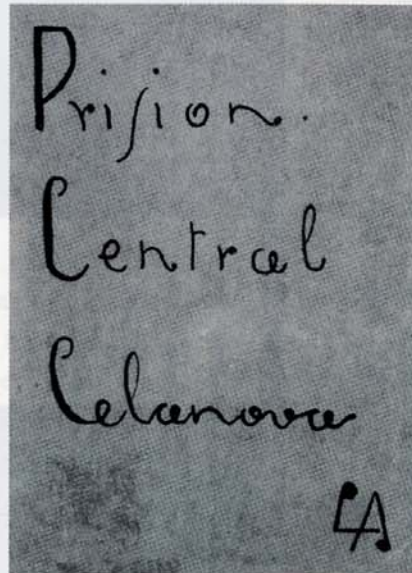 Prision.
Central
Celanova
LA